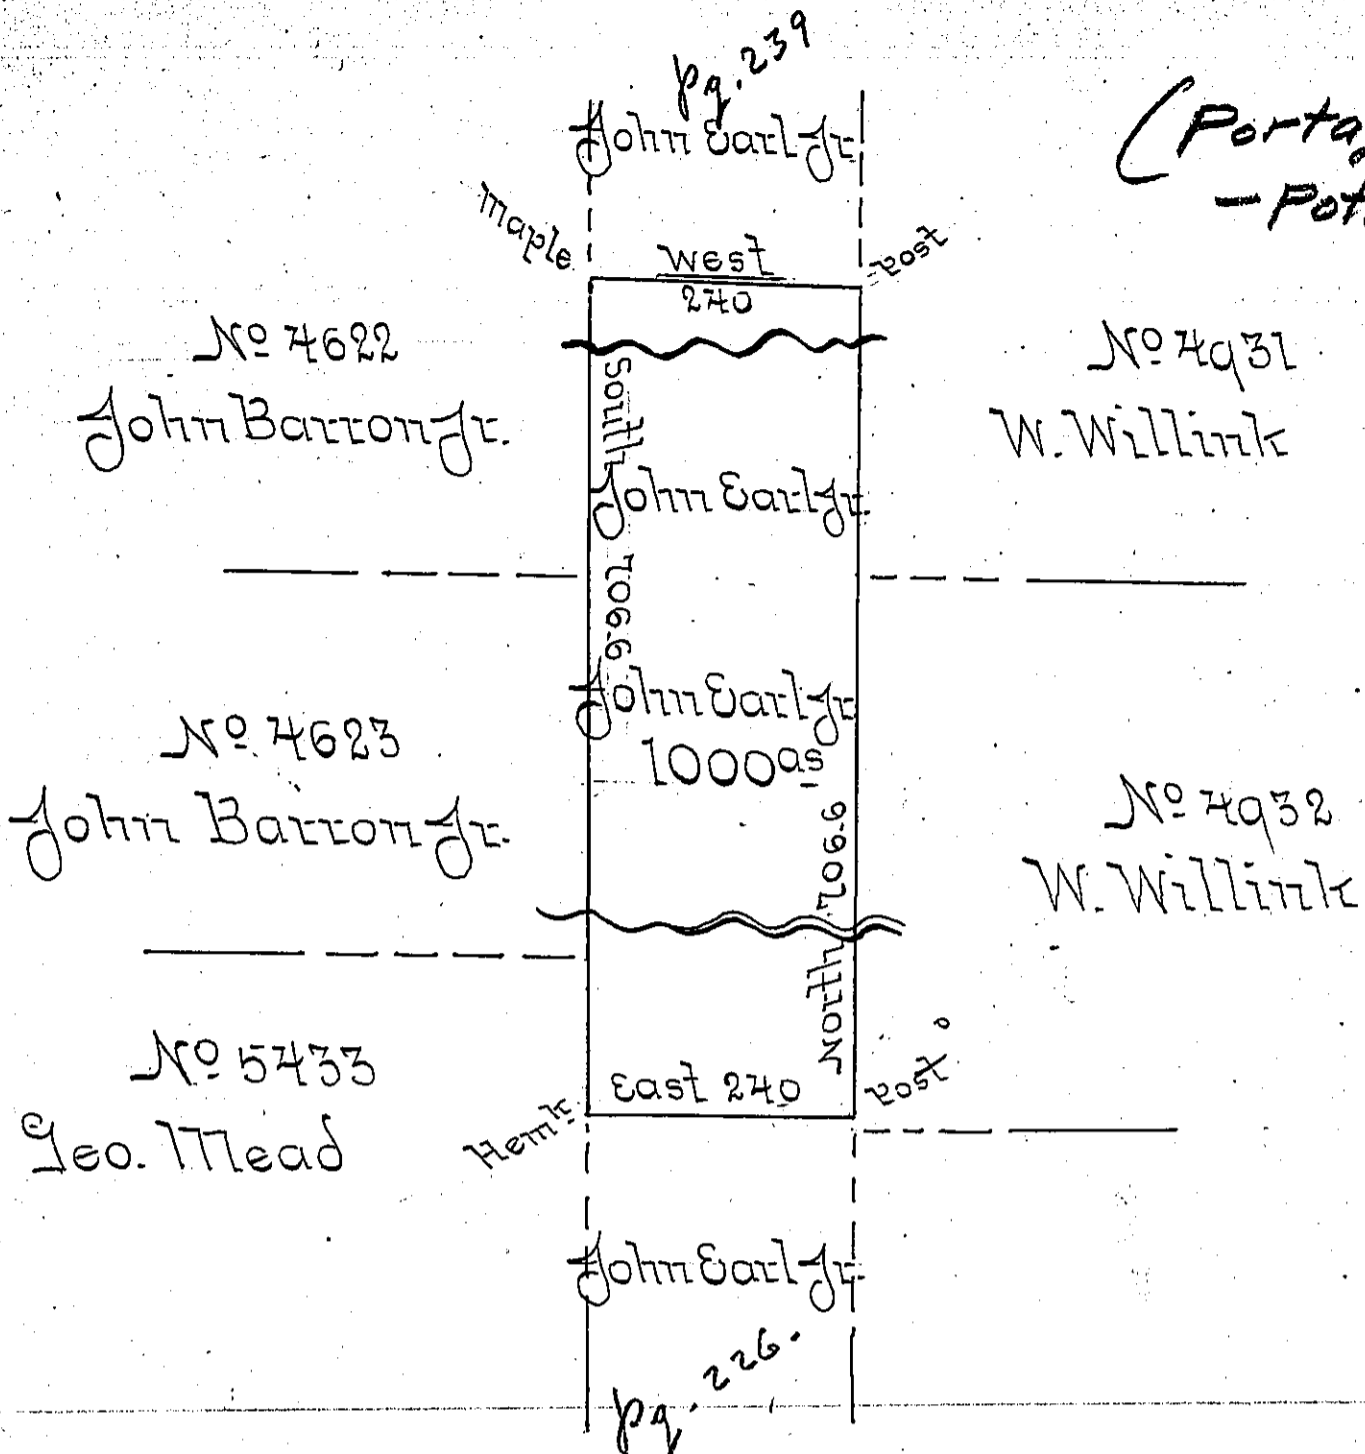 pg. 239
John Earl Jr.
(Porta
- Pot
Maple
West
Post
240
No 4622
John Barron Jr.
No 4931
W. Willink
South 706.6
John Earl Jr.
John Earl Jr.
1000 as
No 4623
John Barron Jr.
No 4932
W. Willink
North 706.6
No 5433
Geo. Mead
East 240
Post
Hemk
John Earl Jr.
pg. 226.